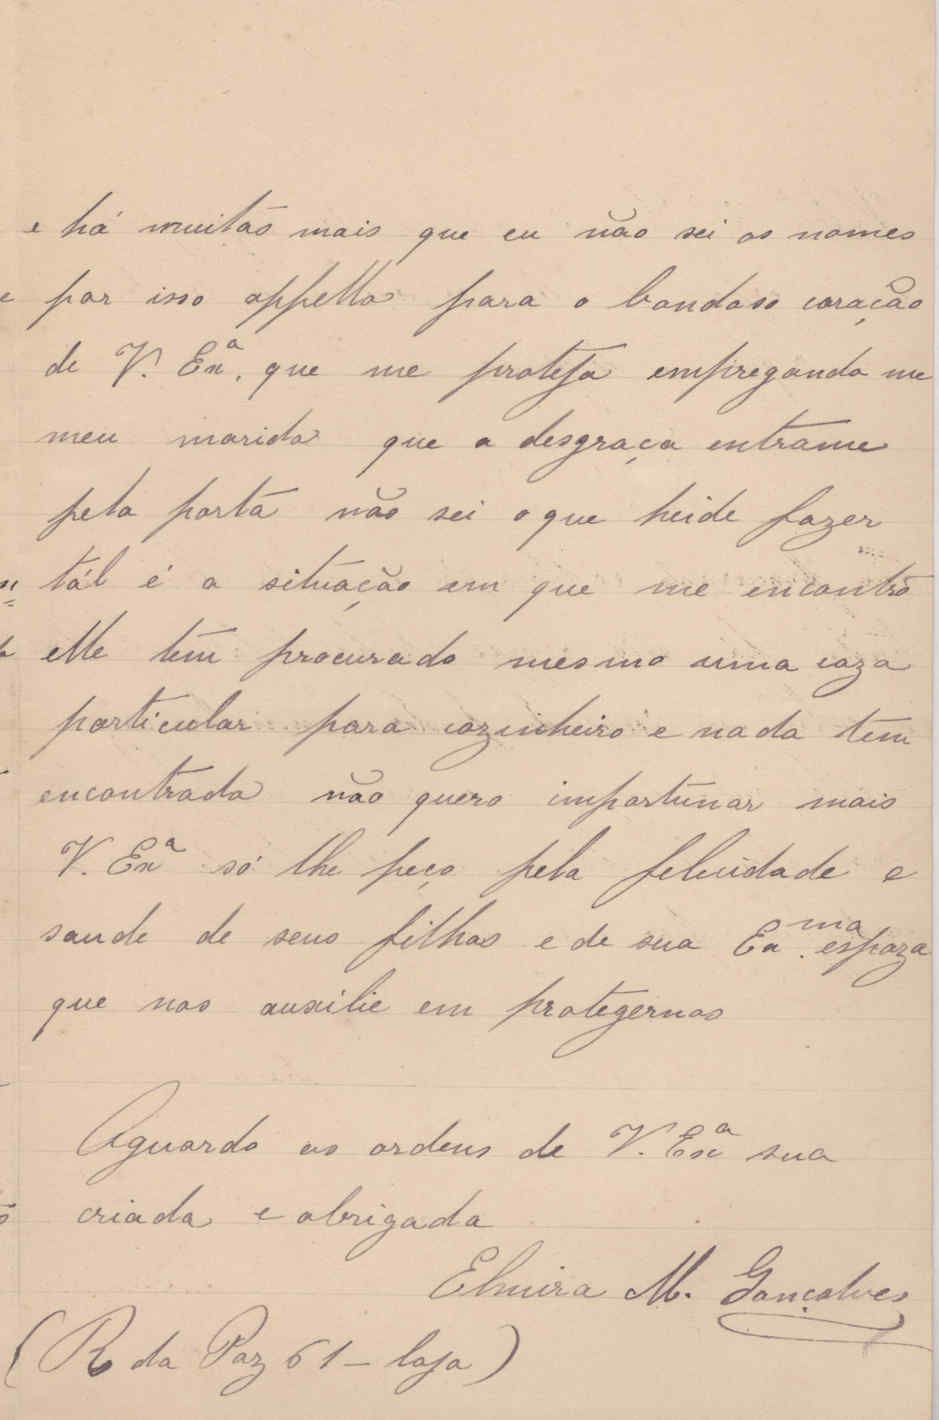 e há muitas mais que eu não sei os nomes
e por isso appello para o bondoso coração
de V. Exª. que me proteja empregando me
meu marido que a desgraça entrame
pela porta não sei o que heide fazer
tál é a situação em que me encontro
elle tem procurado mesmo uma caza
particular para cozinheiro e nada tem
encontrado não quero importunar mais
V. Exª só lhe peço pela felecidade e
saude de seus filhos e de sua Exma. espoza
que nos auxilie em protegernos
Aguardo as ordens de V. Exª sua
criada e obrigada
Elmira M. Gonçalves
(R da Paz 61 – loja)